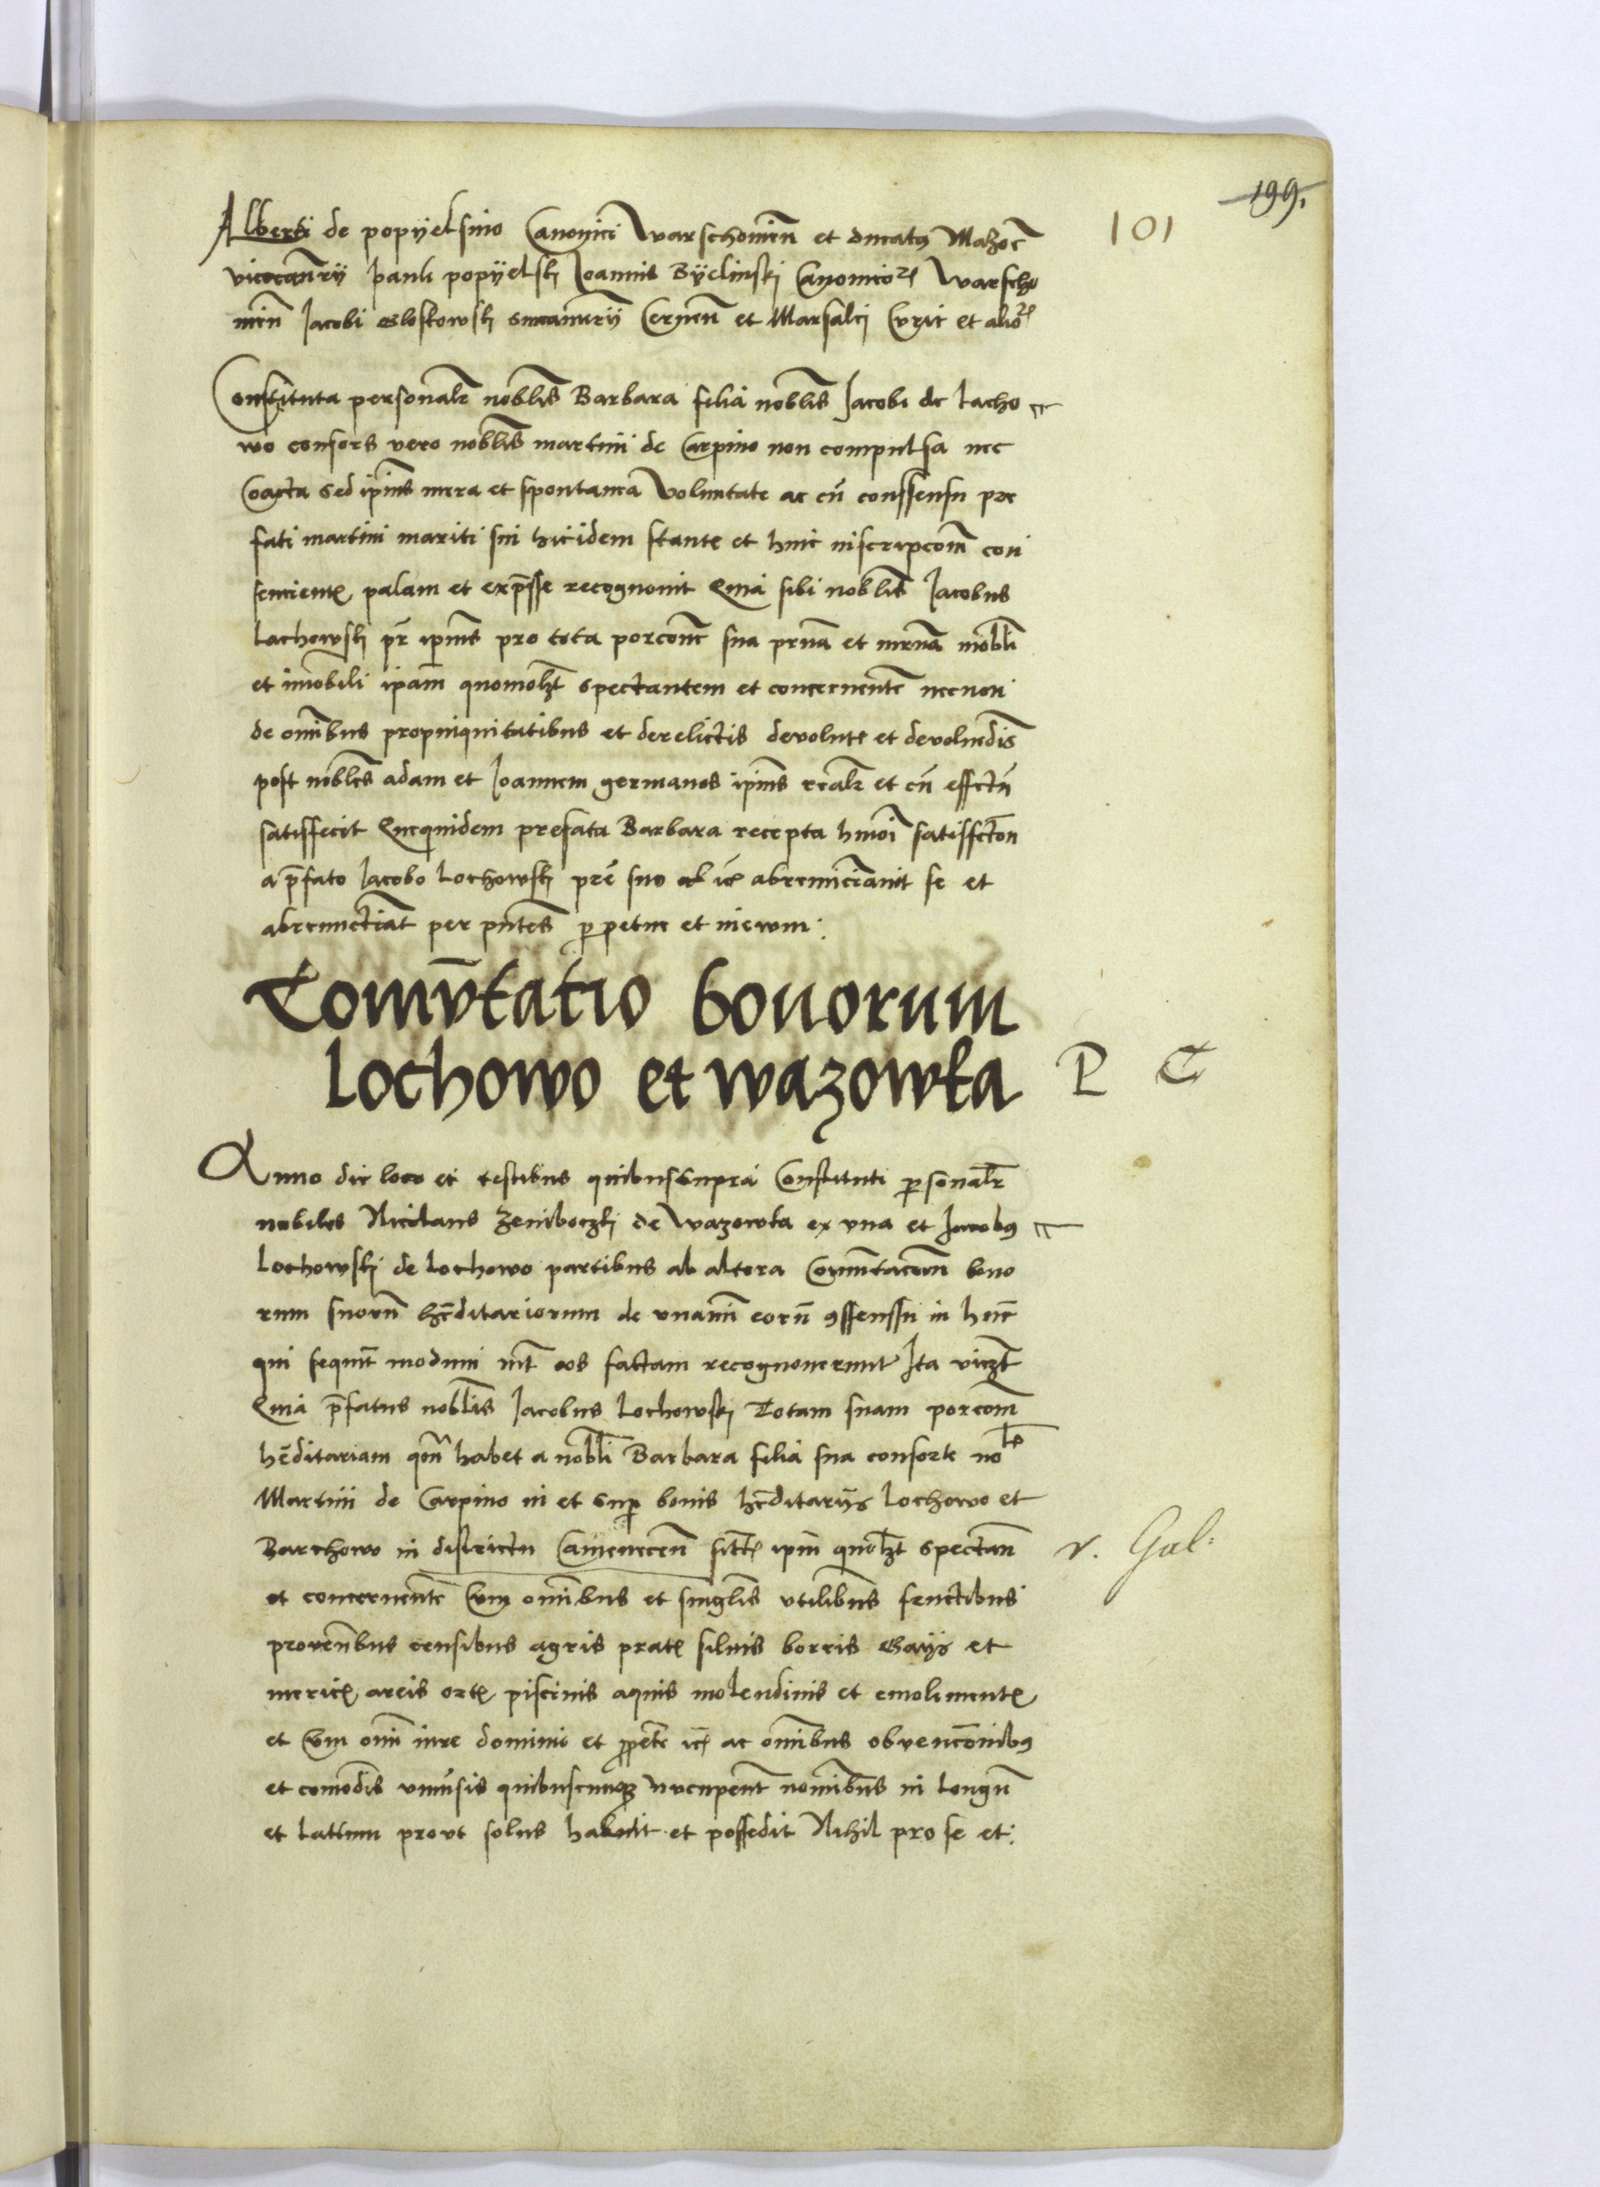 199.
101
Alberti de popyelsino Canonici Warschovien et ducatus Mazoc
vicecancrii Pauli popyelski Joannis Byelinski Canonicor Warscho
vien Jacobi Gloskowski succamerii Cernen et Marsalci Curie et alior
Constituta personalr noblis Barbara filia noblis Jacobi de Lacho
wo consors vero noblis martini de Carpino non compulsa nec
Coacta sed ipius mera et spontanea Voluntate ac cu conssensu pre
fati martini mariti sui hic idem stante et huic inscripcom con
sencient palam et expsse recognovit Quia sibi noblis Jacobus
Lachowski pr ipius pro tota porcone sua prna et mrna mobli
et imobili ipam quomolzt spectantem et concernente necnon
de omibus propinquitatibus et derelictis devolute et devoluedis
post nobles adam et Joannem germanos ipius realr et cu effectu
satisfecit Quequidem prefata Barbara recepta hmoi satisfcton
a pfato Jacobo Lochowski pre suo ab abrenuciavit se et
abrenucciat per pntes ppetue et inewm:
Comutatio bonorum
Lochowo et wazowka
P C
Anno die loco et testibus quibus supra Constituti psonalr
nobiles Nicolaus Zemboczki de Wazowka ex una et Jacobus
Lochowski de Lochowo partibus ab altera Comutacem bono
rum suoru hrditariorum de unaimi eoru 9ssenssu in huc
qui sequit modum int eos factam recognoverunt Ita viczt
Quia pfatus noblis Jacobus Lochowski Totam suam porcom
hrditariam qm habet a nobli Barbara filia sua consorte no
Martini de Carpino in et sup bonis hrditariis Lochowo et
Barchowo in districtu Camenecen sitt ipm quolzt spectan
et concernente Cum omibus et singlis utilibus fructibus
provenbus censibus agris prat silvis borris Gaiis et
meric areis ort piscinis aquis molendinis et emoliment
et Cum omi iure dominio et ppete ac omibus obvencoibus
et comodis univsis quibuscuqz nucupent noibus in longu
et latum prout solus habuit et possedit Nihil pro se et:
v. Gul: